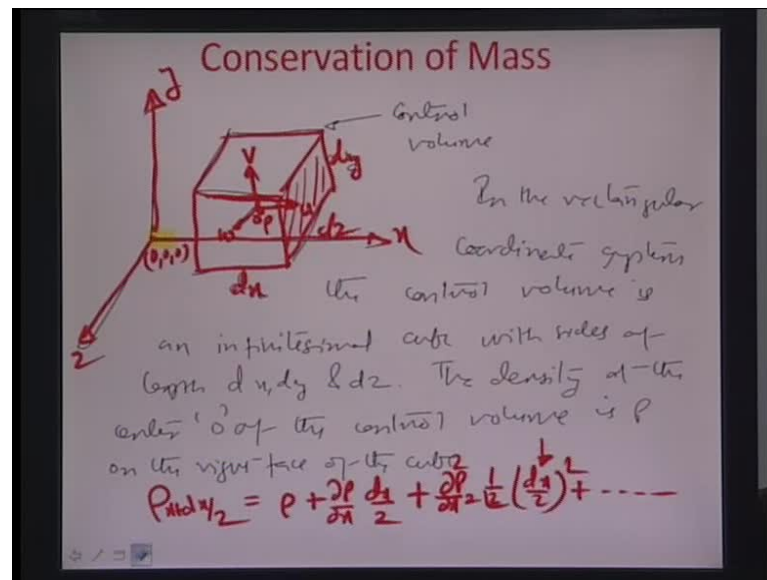 Conservation of Mass
y
control
volume
v
dy
In the rectangular
ρ
u
w
dz
x
(0,0,0)
coordinate system
dx
the control volume is
z
an infinitesimal cube with sides of
length dx, dy & dz. The density at the
center 'O' of the control volume is ρ
on the right face of the cube
ρx+dx/2 = ρ + ∂ρ/∂x dx/2 + ∂²ρ/∂x² 1/2 (dx/2)² + ------